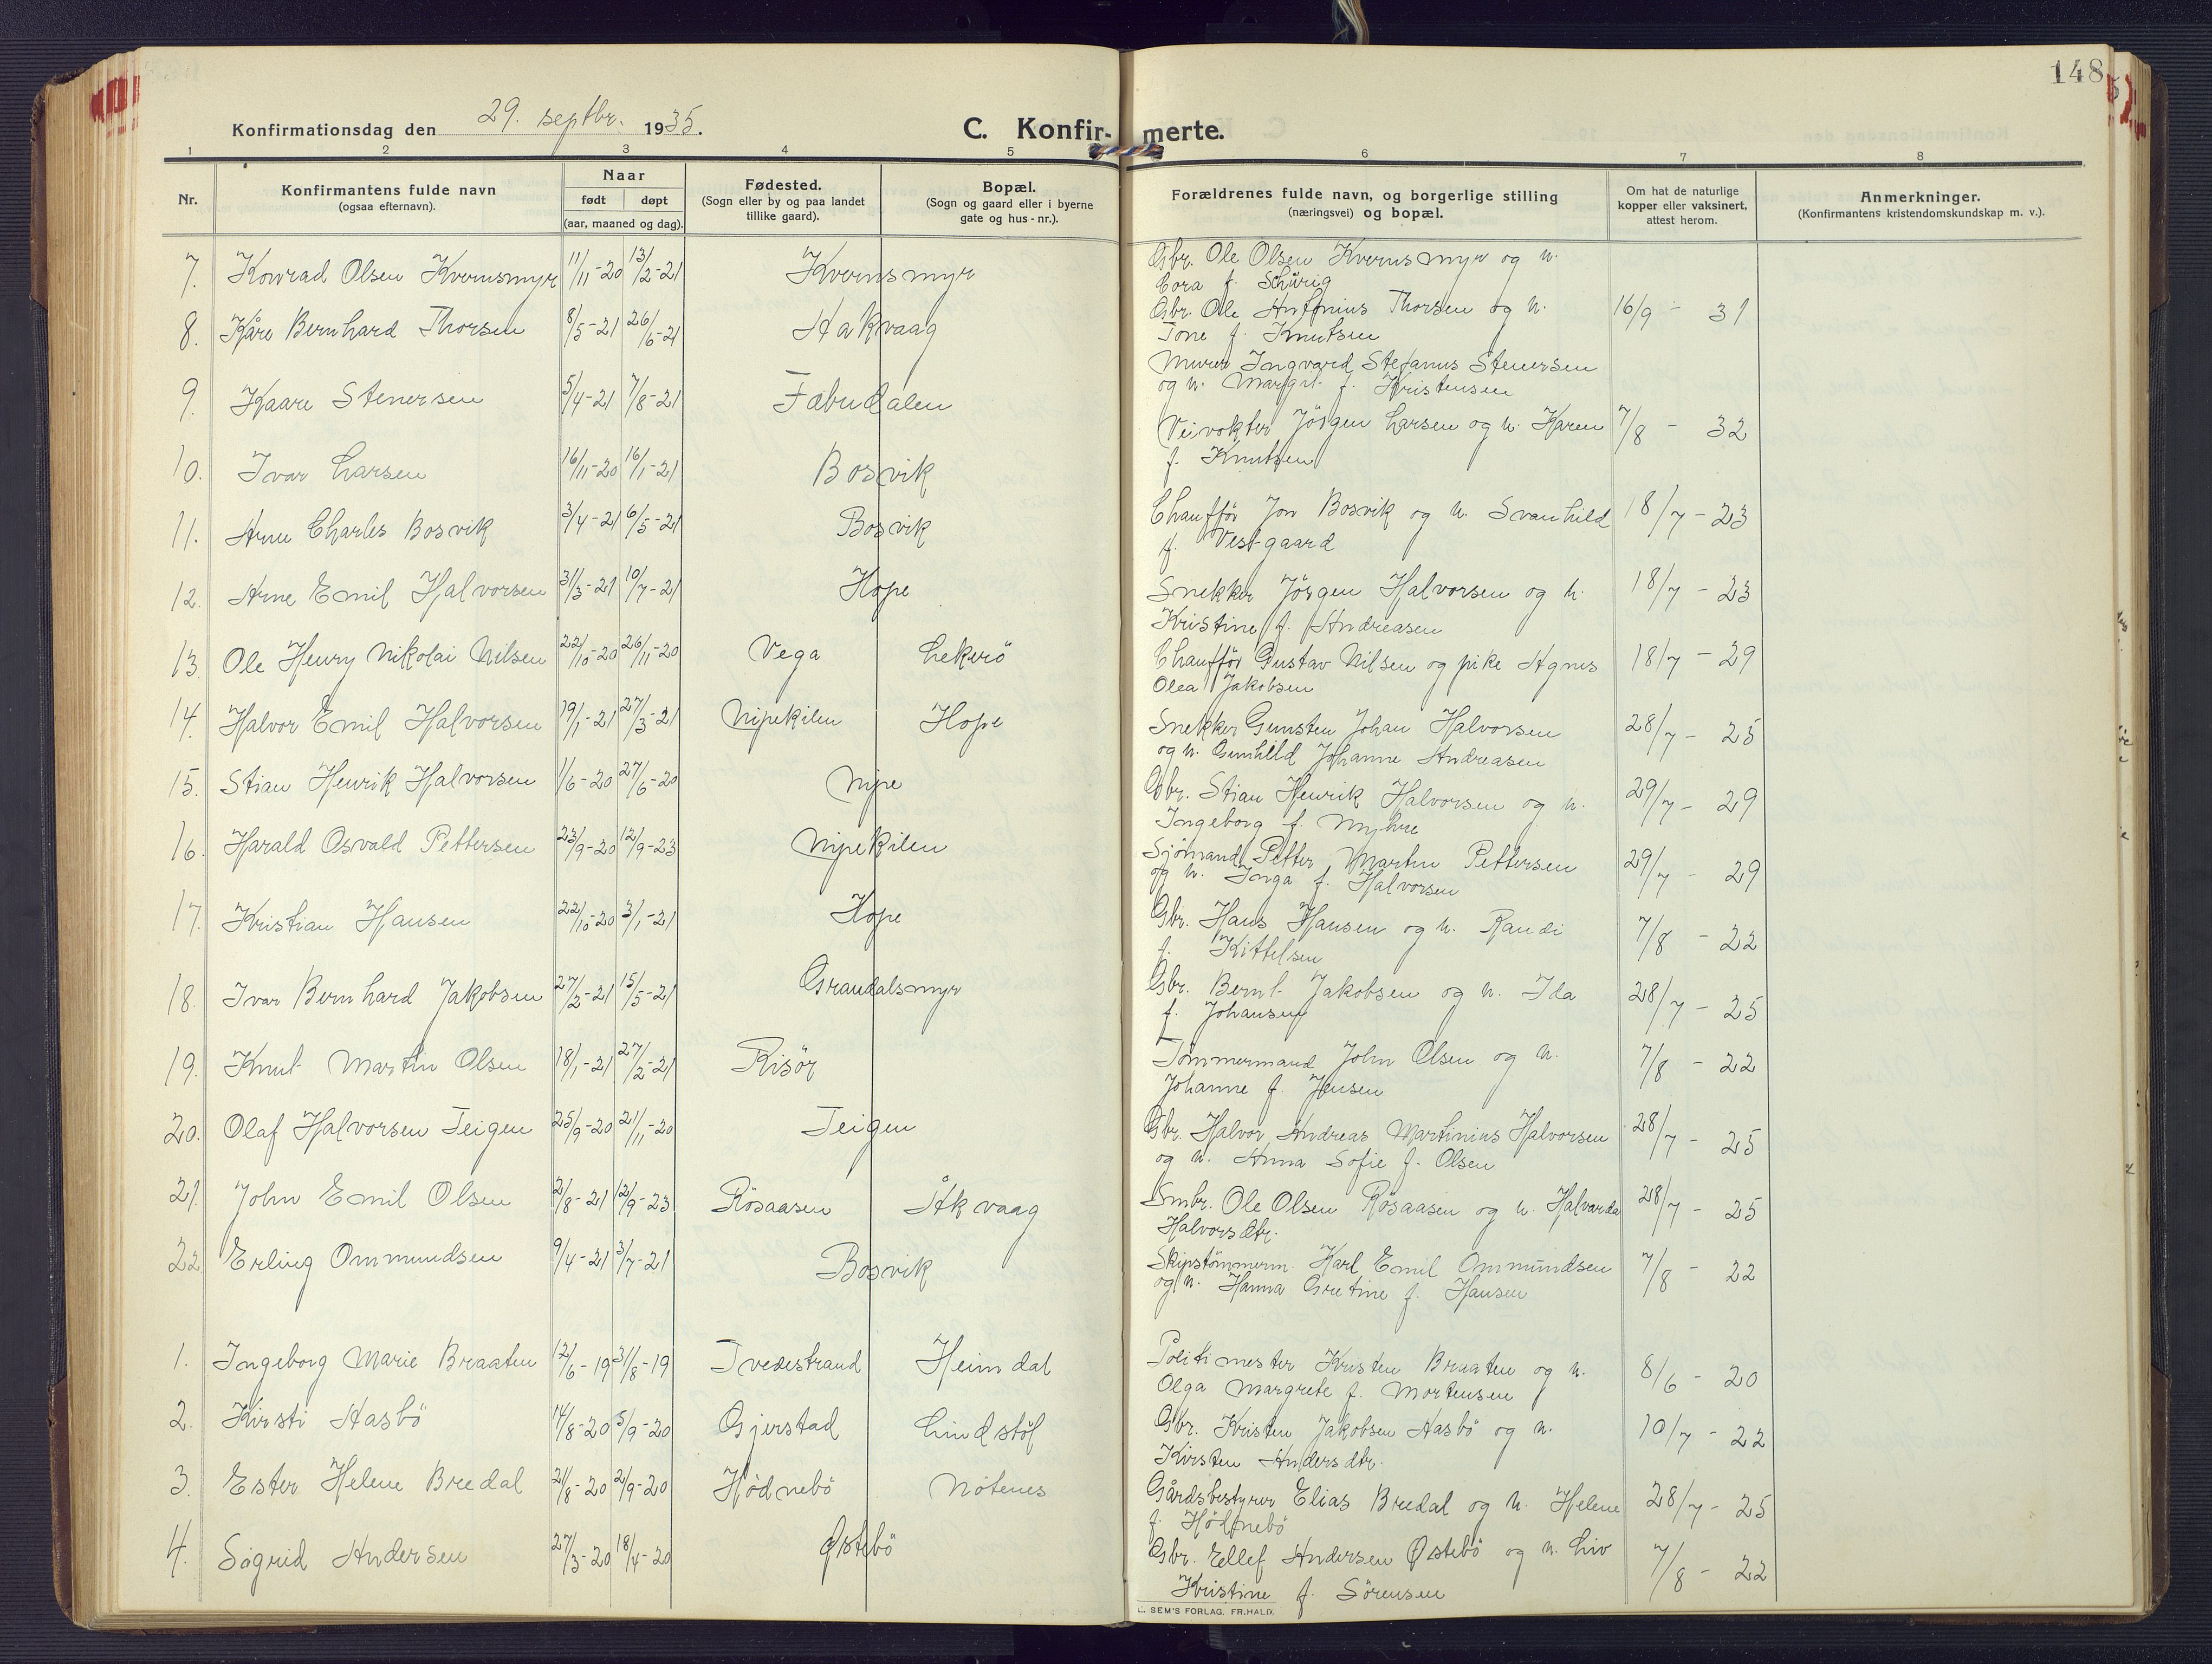 148
Konfirmationsdag den 29. septbr. 1935.
C. Konfir- merte.
1 2 3 4 5 6 7 8
Nr.
Konfirmantens fulde navn
(ogsaa efternavn).
Naar
født døpt
(aar, maaned og dag).
Fødested.
(Sogn eller by og paa landet
tillike gaard).
Bopæl.
(Sogn og gaard eller i byerne
gate og hus-nr.).
Forældrenes fulde navn, og borgerlige stilling
(næringsvei) og bopæl.
Om hat de naturlige
kopper eller vaksinert,
attest herom.
Anmerkninger.
(Konfirmantens kristendomskundskap m. v.).
7. Konrad Olsen Kvernsmyr 11/11-20 13/2-21 Kvernsmyr Gbr. Ole Olsen Kvernsmyr og h.
Cora f. Schürig
8. Kåre Bernhard Thorsen 8/5-21 26/6-21 Hakvaag Gbr. Ole Antonius Thorsen og h. 16/9 - 31
Tone f. Knutsen
9. Kaare Stenersen 5/4-21 7/8-21 Fæbudalen Murer Ingvard Stefanus Stenersen
og h. Margit f. Kristensen
10. Ivar Larsen 16/11-20 16/1-21 Bosvik Veivokter Jörgen Larsen og h. Karen 7/8 - 32
f. Knutsen
11. Arne Charles Bosvik 3/4-21 6/5-21 Bosvik Chaufför Jon Bosvik og h. Svanhild 18/7 - 23
f. Vestgaard
12. Arne Emil Halvorsen 31/3-21 10/7-21 Hope Snekker Jörgen Halvorsen og h. 18/7 - 23
Kristine f. Andreasen
13. Ole Henry Nikolai Nilsen 22/10-20 26/11-20 Vega Lekerö Chaufför Gustav Nilsen og pike Agnes 18/7 - 29
Olea Jakobsen
14. Halvor Emil Halvorsen 19/1-21 27/3-21 Nipekilen Hope Snekker Gunsten Johan Halvorsen 28/7 - 25
og h. Gunhild Johanne Andreasen
15. Stian Henrik Halvorsen 1/6-20 27/6-20 Nipe Gbr. Stian Henrik Halvorsen og h. 29/7 - 29
Ingeborg f. Myhre
16. Harald Osvald Pettersen 23/9-20 12/9-23 Nipekilen Sjömand Petter Martin Pettersen 29/7 - 29
og h. Inga f. Halvorsen
17. Kristian Hansen 22/10-20 3/1-21 Hope Gbr. Hans Hansen og h. Randi 7/8 - 22
f. Kittelsen
18. Ivar Bernhard Jakobsen 27/2-21 15/5-21 Grandalsmyr Gbr. Bernt Jakobsen og h. Ida 28/7 - 25
f. Johansen
19. Knut Martin Olsen 18/1-21 27/2-21 Risör Tömmermand John Olsen og h. 7/8 - 22
Johanne f. Jensen
20. Olaf Halvorsen Teigen 25/9-20 21/11-20 Teigen Gbr. Halvor Andreas Martinius Halvorsen 28/7 - 25
og h. Anna Sofie f. Olsen
21. John Emil Olsen 2/8-21 12/9-23 Rösaasen Åkvaag Smbr. Ole Olsen Rösaasen og h. Halvarda 28/7 - 25
Halvorsdtr.
22 Erling Ommundsen 9/4-21 3/7-21 Bosvik Skipstömmerm. Karl Emil Ommundsen 7/8 - 22
og h. Hanna Gretine f. Hansen
1. Ingeborg Marie Braaten 12/6-19 31/8-19 Tvedestrand Heimdal Politimester Kristen Braaten og h. 8/6 - 20
Olga Margrete f. Mortensen
2. Kirsti Aasbö 14/8-20 5/9-20 Gjerstad Lindstöl Gbr. Kristen Jakobsen Aasbö og h. 10/7 - 22
Kirsten Andersdtr.
3. Ester Helene Bredal 2/8-20 2/9-20 Hödnebö Nötenes Gårdsbestyrer Elias Bredal og h. Helene 28/7 - 25
f. Hödnebö
4. Sigrid Andersen 27/3-20 18/4-20 Østebö Gbr. Ellef Andersen Østebö og h. Liv 7/8 - 22
Kristine f. Sörensen
E. SEM'S FORLAG, FR.HALD.